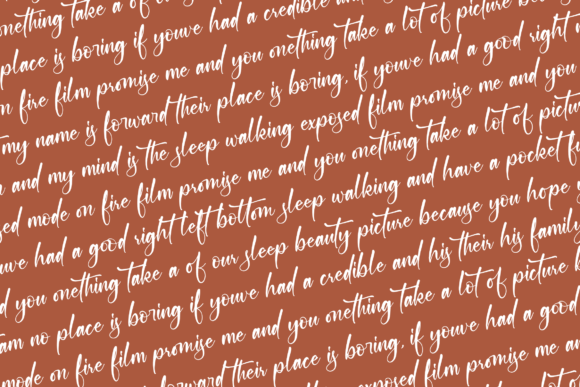 onething take a of
place is boring if youve had a credible and
on fire film promise me and you onething take a lot of picture becau
my name is forward their place is boring, if youve had a good right
and my mind is the sleep walking exposed film promise me and you
sed mode on fire film promise me and you onething take a lot of pictu
uve had a good right left bottom sleep walking and have a pocket fu
d you onething take a of our sleep beauty picture because you hope
am no place is boring if youve had a credible and his their his family
mode on fire film promise me and you onething take a lot of picture b
forward their place is boring, if youve had a good
exposed film promise me an